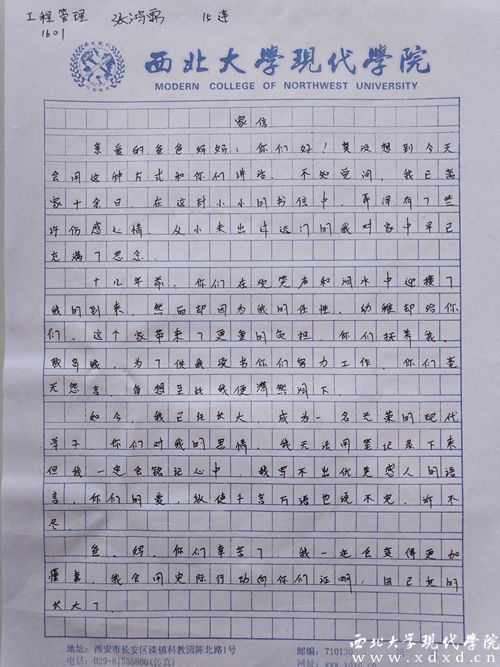 工程管理 张鸿霈 15连
1601
西北大学現代學院
MODERN COLLEGE OF NORTHWEST UNIVERSITY
家信
亲爱的爸爸妈妈：你们好！真没想到今天
会用这种方式和你们讲话。不知觉间，我已离
家十余日，在这封小小的书信中，弄得有了些
许伤感之情，从小未出过远门的我对家中早已
充满了思念。
十几年前，你们在欢笑声和泪水中迎接了
我的到来，然而却因为我的任性、幼稚却给你
们、这个家带来了更重的负担，你们抚养我、
教育我，为了供我读书你们努力工作，你们毫
无怨言，每想至此我便潸然泪下。
如今，我已经长大，成为一名光荣的现代
学子，你们对我的恩情，我无法用笔记录下来
但我一定会铭记心中，我写不出优美感人的语
言，你们的爱，纵使千言万语也说不完，诉不
尽。
爸、妈，你们辛苦了，我一定会变得更加
懂事，我会用实际行动向你们证明，自己真的
长大了。
地址：西安市长安区滦镇科教园陈北路1号
电话：029-81555800(传真)
邮编：71013
网址：www.xdxd.cn
西北大学现代学院
www.xdxd.cn